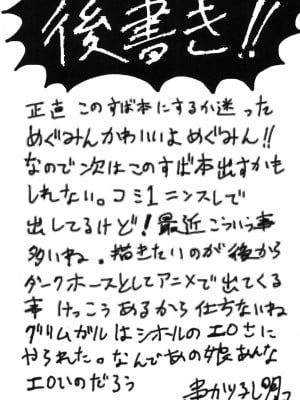 後書き!!
正直 このすば本にするか迷った
めぐみんかわいいよめぐみん!!
なので次はこのすば本出すかも
しれない。コミ1ニンスしで
出してるけど!最近こういう事
多いね。描きたいのが後から
ダークホースとしてアニメで出てくる
事 けっこうあるから仕ちないね
グリムガルはシホールのエロさに
やられた。なんであの娘あんな
エロいのだろう